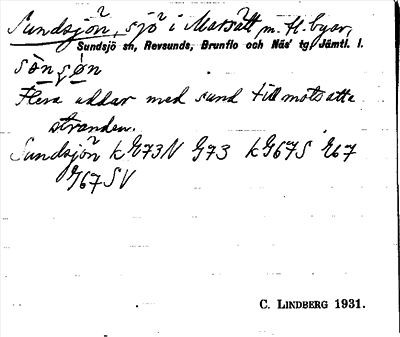 Sundsjön, sjö i Marsätt m. fl. byar,
Sundsjö sn, Revsunds, Brunflo och Näs' tg, Jämtl. l.
Flera uddar med sund till motsatta
stranden.
Sundsjön k G73N G73 k G67S G67
G67SV
C. LINDBERG 1931.